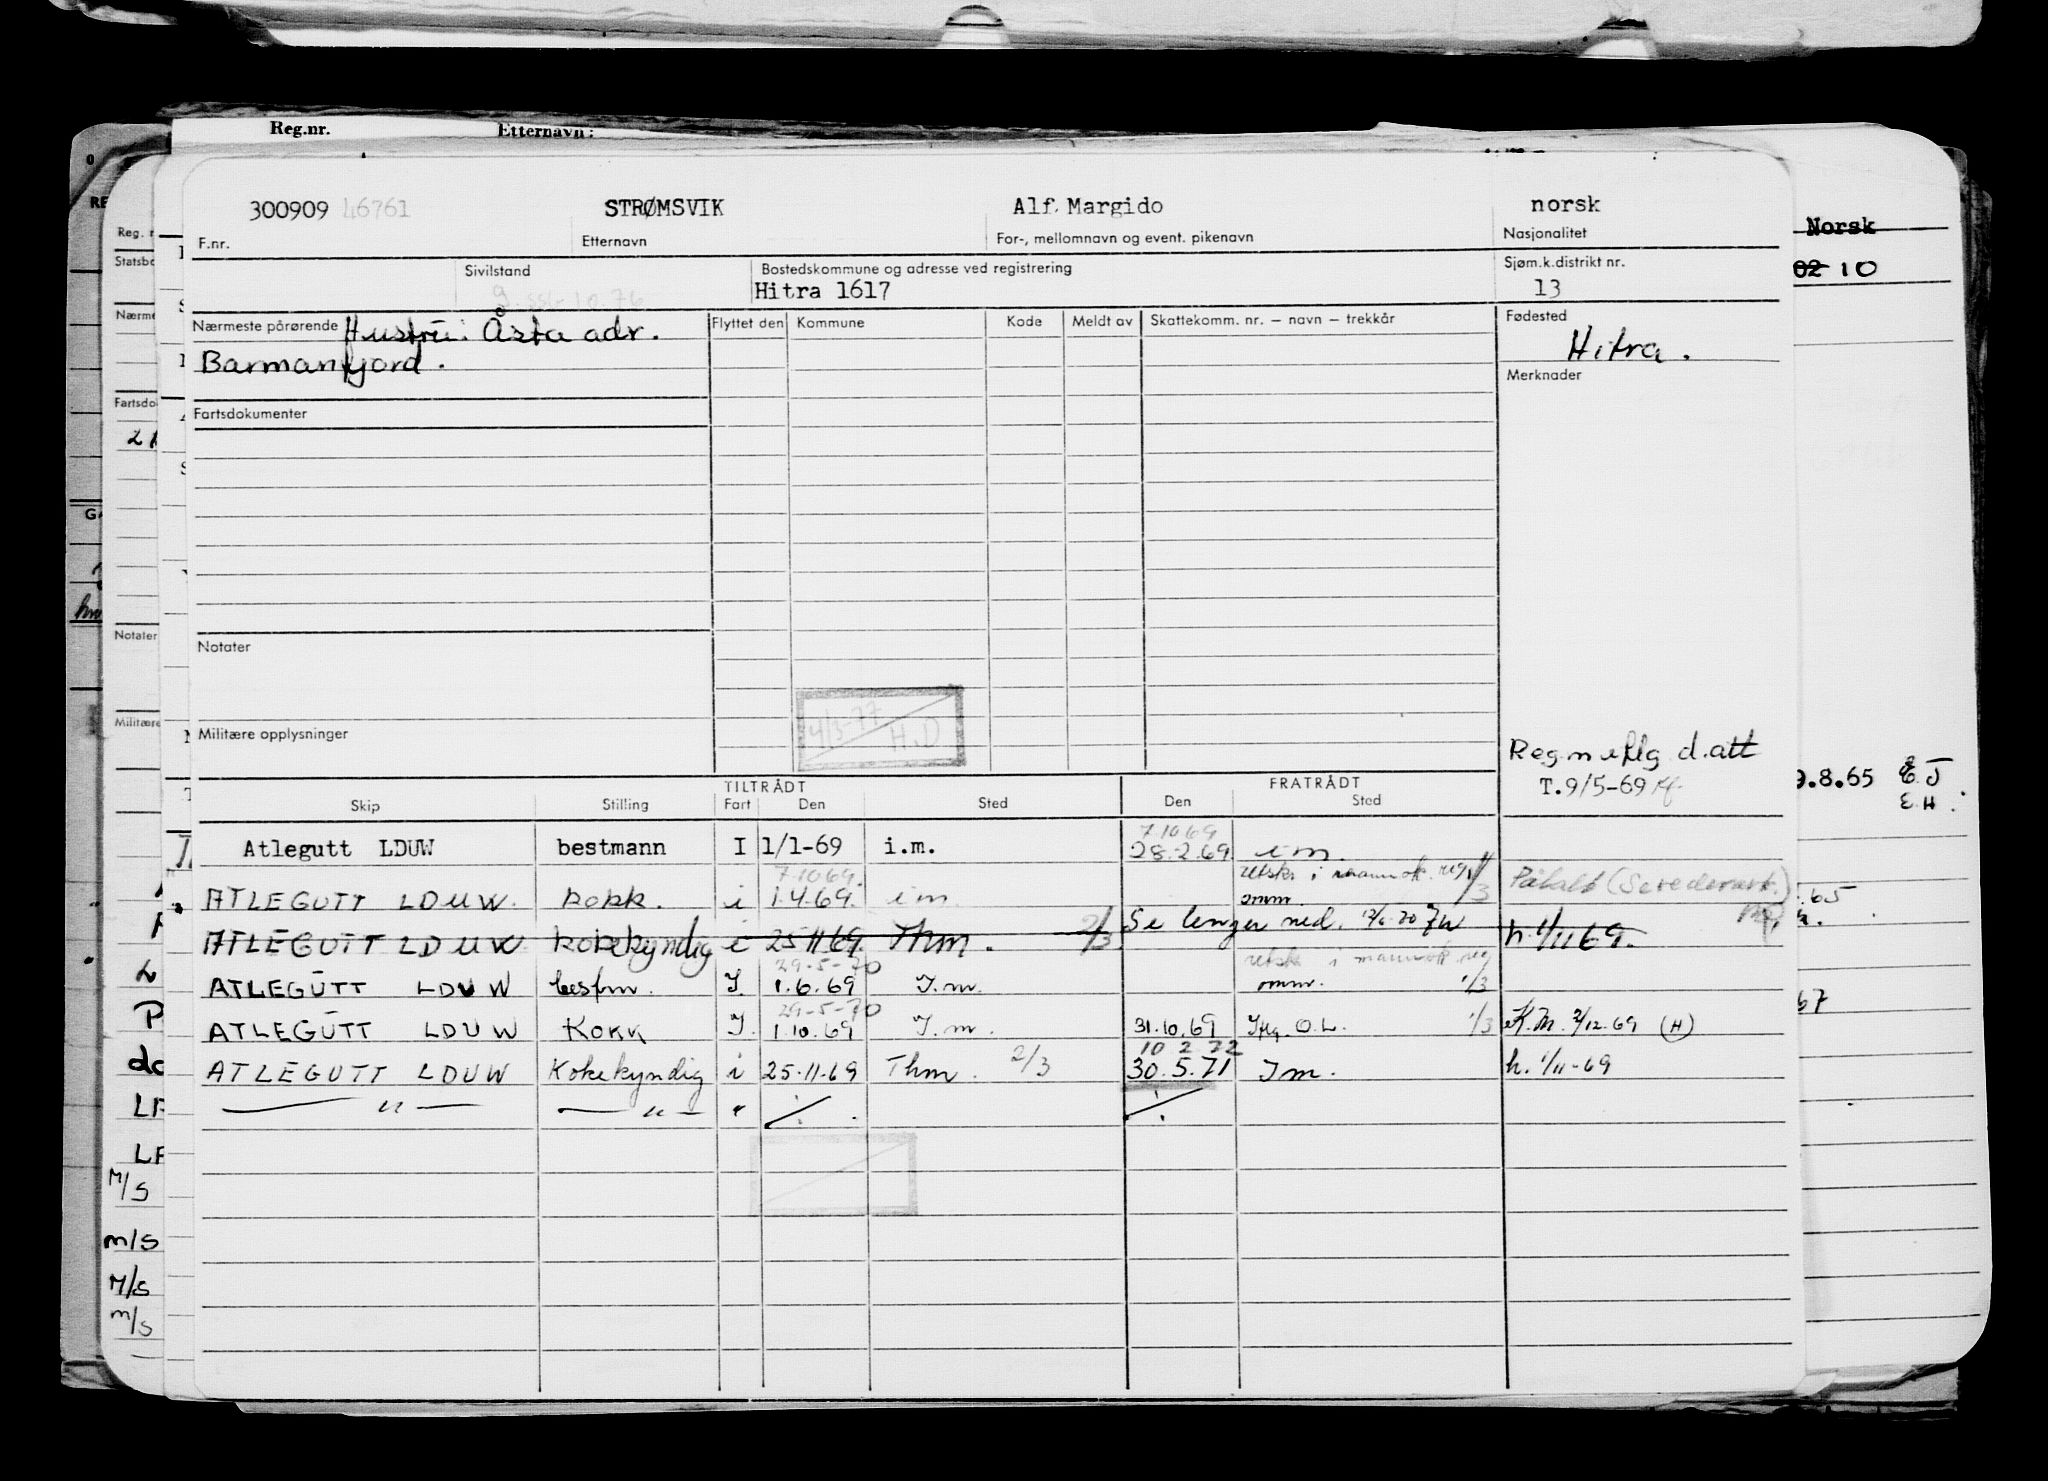 Reg.nr. Etternavn:
300909 46761 STRØMSVIK Alf Margido norsk
F.nr. Etternavn For-, mellomnavn og event. pikenavn Nasjonalitet
Norsk
Sivilstand Bostedskommune og adresse ved registrering Sjøm.k.distrikt nr.
02 10
Hitra 1617 13
Nærmeste pårørende Hustru: Åsta adr. Flyttet den Kommune Kode Meldt av Skattekomm. nr. – navn – trekkår Fødested
Barmanfjord. Hitra.
Merknader
Fartsdokumenter
Notater
4/3-77
H.D
Militære opplysninger
Reg.m d.att
T.9/5-69
9.8.65
E.H.
TILTRÅDT FRATRÅDT
Skip Stilling Fart Den Sted Den Sted
7.10.69
Atlegutt LDUW bestmann I 1/1-69 i.m. 28.2.69 i m.
7.10.69.
ATLEGUTT LDUW. kokk. i 1.4.69. i m. omm. 1/3
ATLEGUTT LDUW kokekyndig i 25.11.69. Thm. 2/3 Se lenger ned. h. 1/11 69.
29-5-70
ATLEGUTT LDUW bestm. I. 1.6.69 I.m. omm. 1/3
29-5-70
ATLEGUTT LDUW KOKK I. 1.10.69 I.m. 31.10.69 O.L. 1/3 K.M. 2/12.69 (H)
10 2 72
ATLEGUTT LDUW Kokekyndig i 25.11.69 Thm. 2/3 30.5.71 I m. h. 1/11-69
— " — — " — " ÷ ÷
M/S
m/s
M/S
m/s